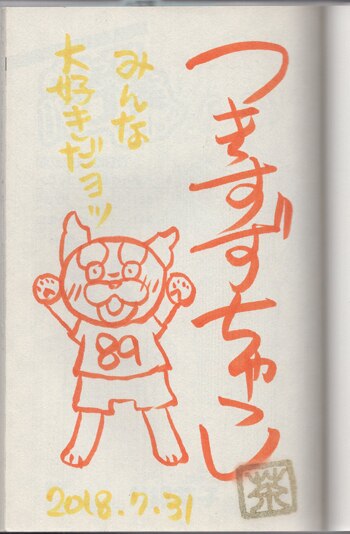 つきすずちゃん
みんな
大好きだヨッ
89
2018.7.31
茶